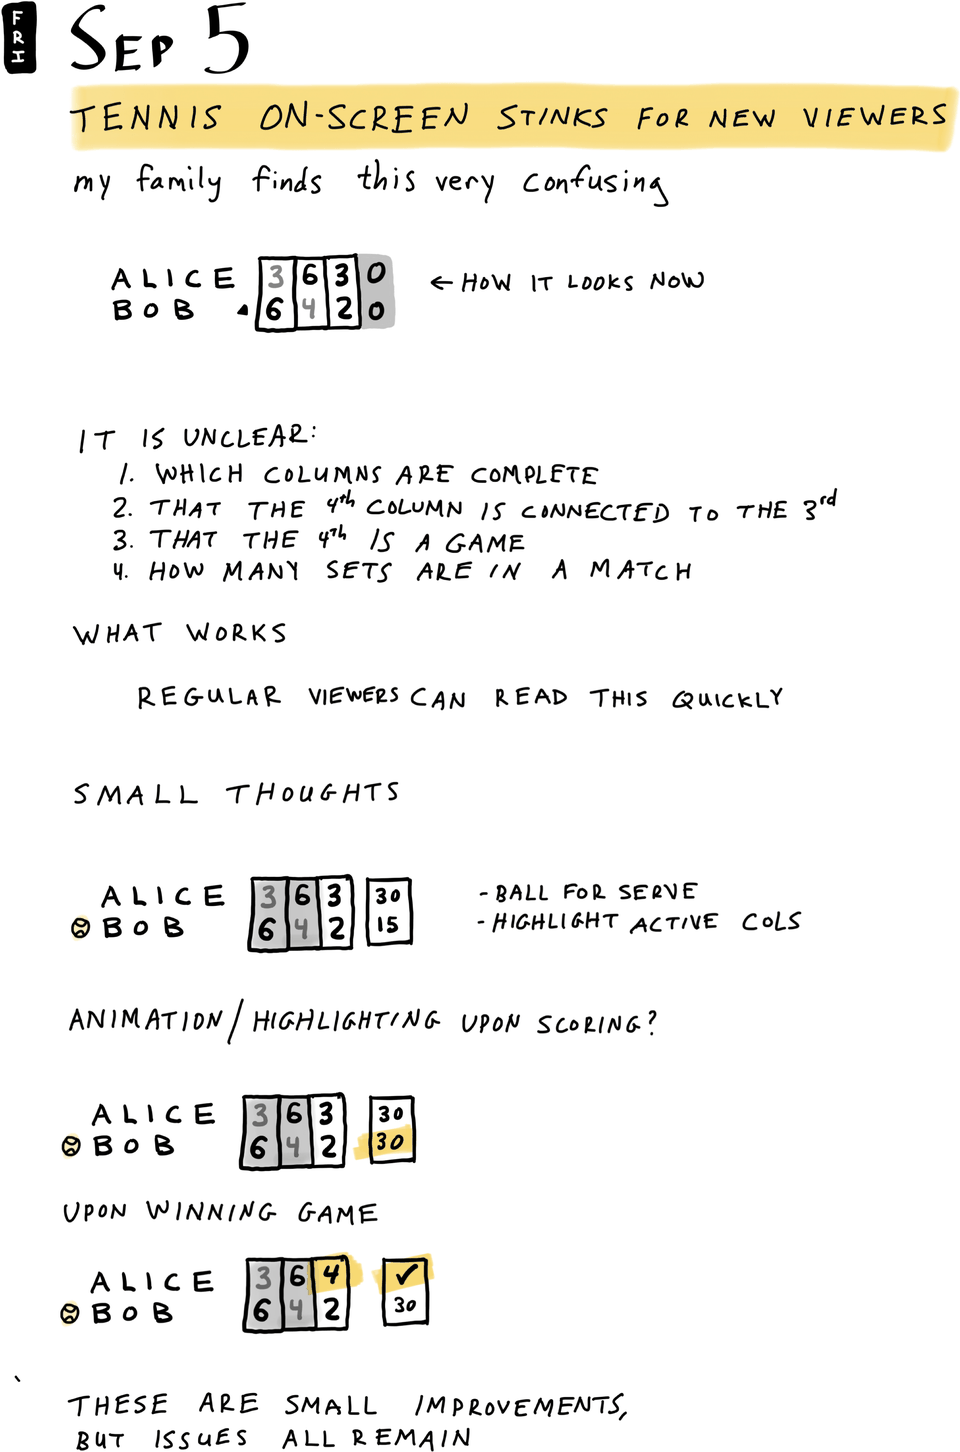 FRI
SEP 5
TENNIS ON-SCREEN STINKS FOR NEW VIEWERS
my family finds this very confusing
ALICE 3 6 3 0 ← HOW IT LOOKS NOW
BOB 6 4 2 0
IT IS UNCLEAR:
1. WHICH COLUMNS ARE COMPLETE
2. THAT THE 4th COLUMN IS CONNECTED TO THE 3rd
3. THAT THE 4th IS A GAME
4. HOW MANY SETS ARE IN A MATCH
WHAT WORKS
REGULAR VIEWERS CAN READ THIS QUICKLY
SMALL THOUGHTS
ALICE 3 6 3 30 - BALL FOR SERVE
BOB 6 4 2 15 - HIGHLIGHT ACTIVE COLS
ANIMATION/HIGHLIGHTING UPON SCORING?
ALICE 3 6 3 30
BOB 6 4 2 30
UPON WINNING GAME
ALICE 3 6 4 ✓
BOB 6 4 2 30
THESE ARE SMALL IMPROVEMENTS,
BUT ISSUES ALL REMAIN